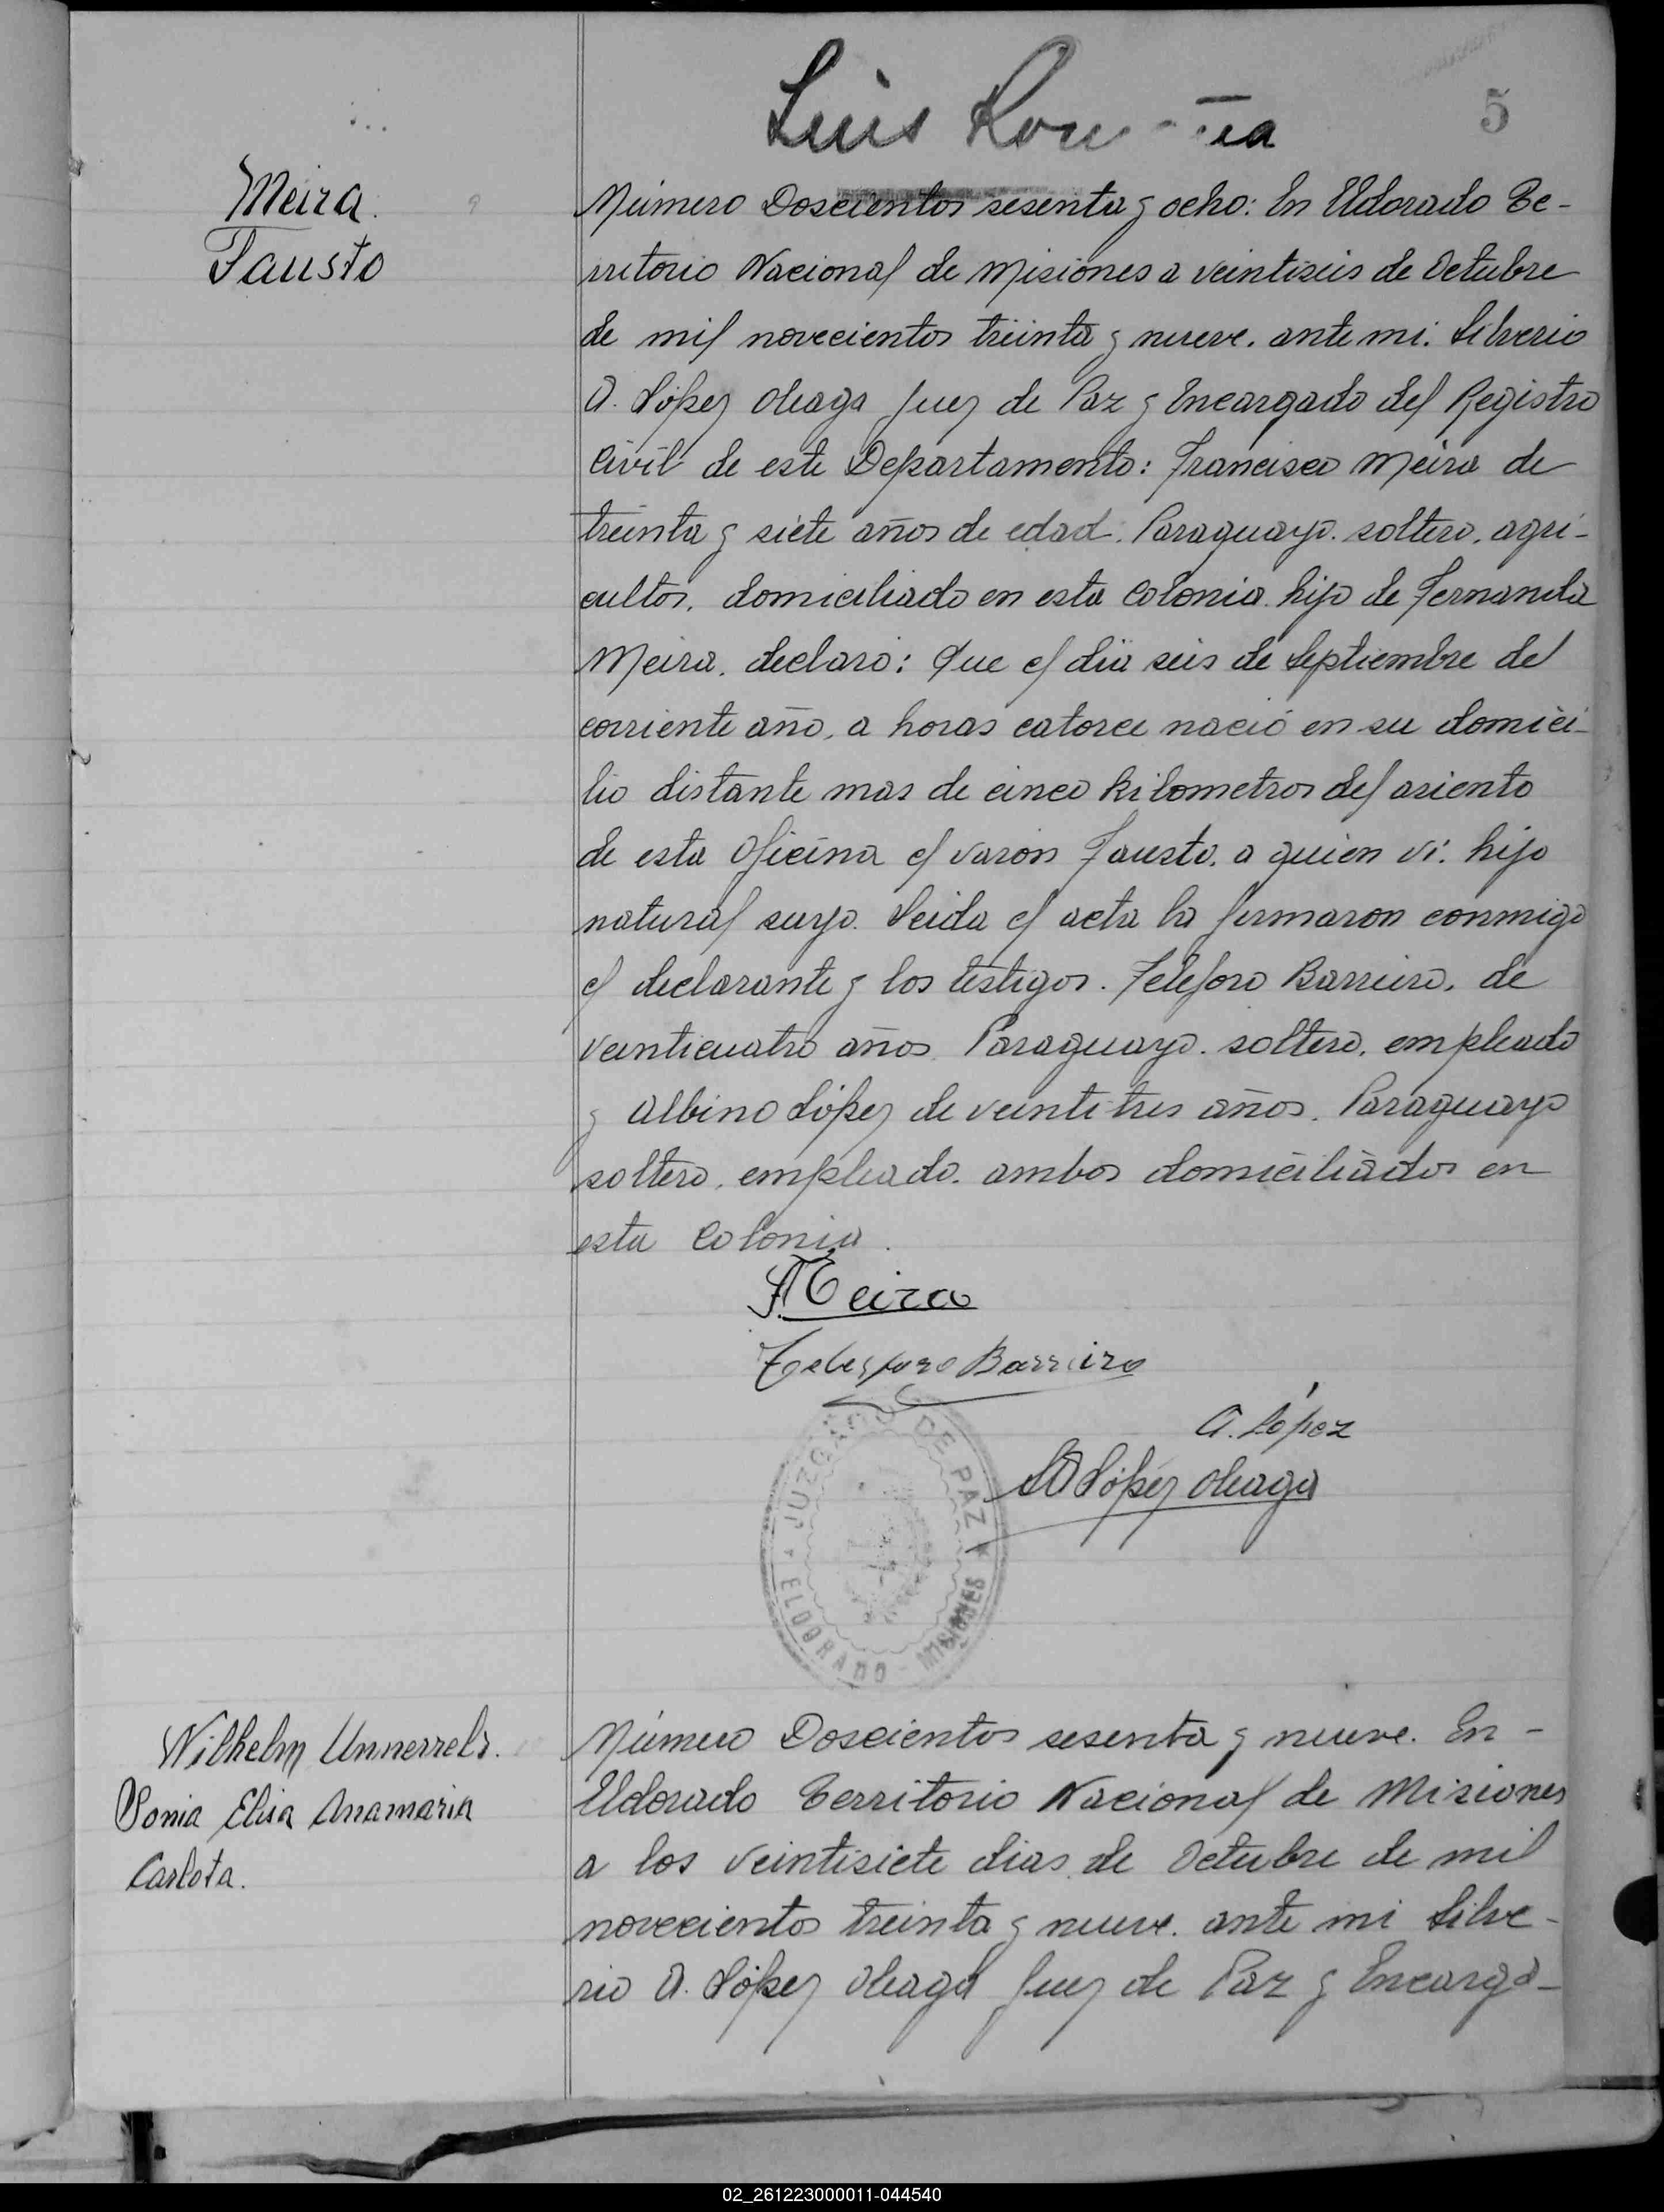 Luis
5
Meira
Fausto
Número Doscientos sesenta y ocho: En Eldorado Te-
rritorio Nacional de Misiones a veintiseis de Octubre
de mil novecientos treinta y nueve. ante mi: Silverio
A. López Oleaga Juez de Paz y Encargado del Registro
Civil de este Departamento: Francisco Meira de
treinta y siete años de edad. Paraguayo. soltero. agri-
cultor. domiciliado en esta Colonia. hijo de Fernanda
Meira. declaro: Que el dia seis de Septiembre del
corriente año, a horas catorce nació en su domici-
lio distante mas de cinco kilometros del asiento
de esta Oficina el varon Fausto. a quien vi: hijo
natural suyo. Leida el acta la firmaron conmigo
el declarante y los testigos. Telesforo Barreiro. de
veinticuatro años. Paraguayo. soltero. empleado
y Albino López de veintitres años. Paraguayo
soltero. empleado. ambos domiciliados en
esta Colonia.
Meira
Telesforo Barreiro
A. López
SA López Oleaga
JUZGADO DE PAZ
ELDORADO - MISIONES
Wilhelm
Sonia Elisa Anamaria
Carlota.
Número Doscientos sesenta y nueve. En -
Eldorado Territorio Nacional de Misiones
a los veintisiete dias de Octubre de mil
novecientos treinta y nueve. ante mi Silve-
rio A. López Oleaga Juez de Paz y Encarga-
02_261223000011-044540